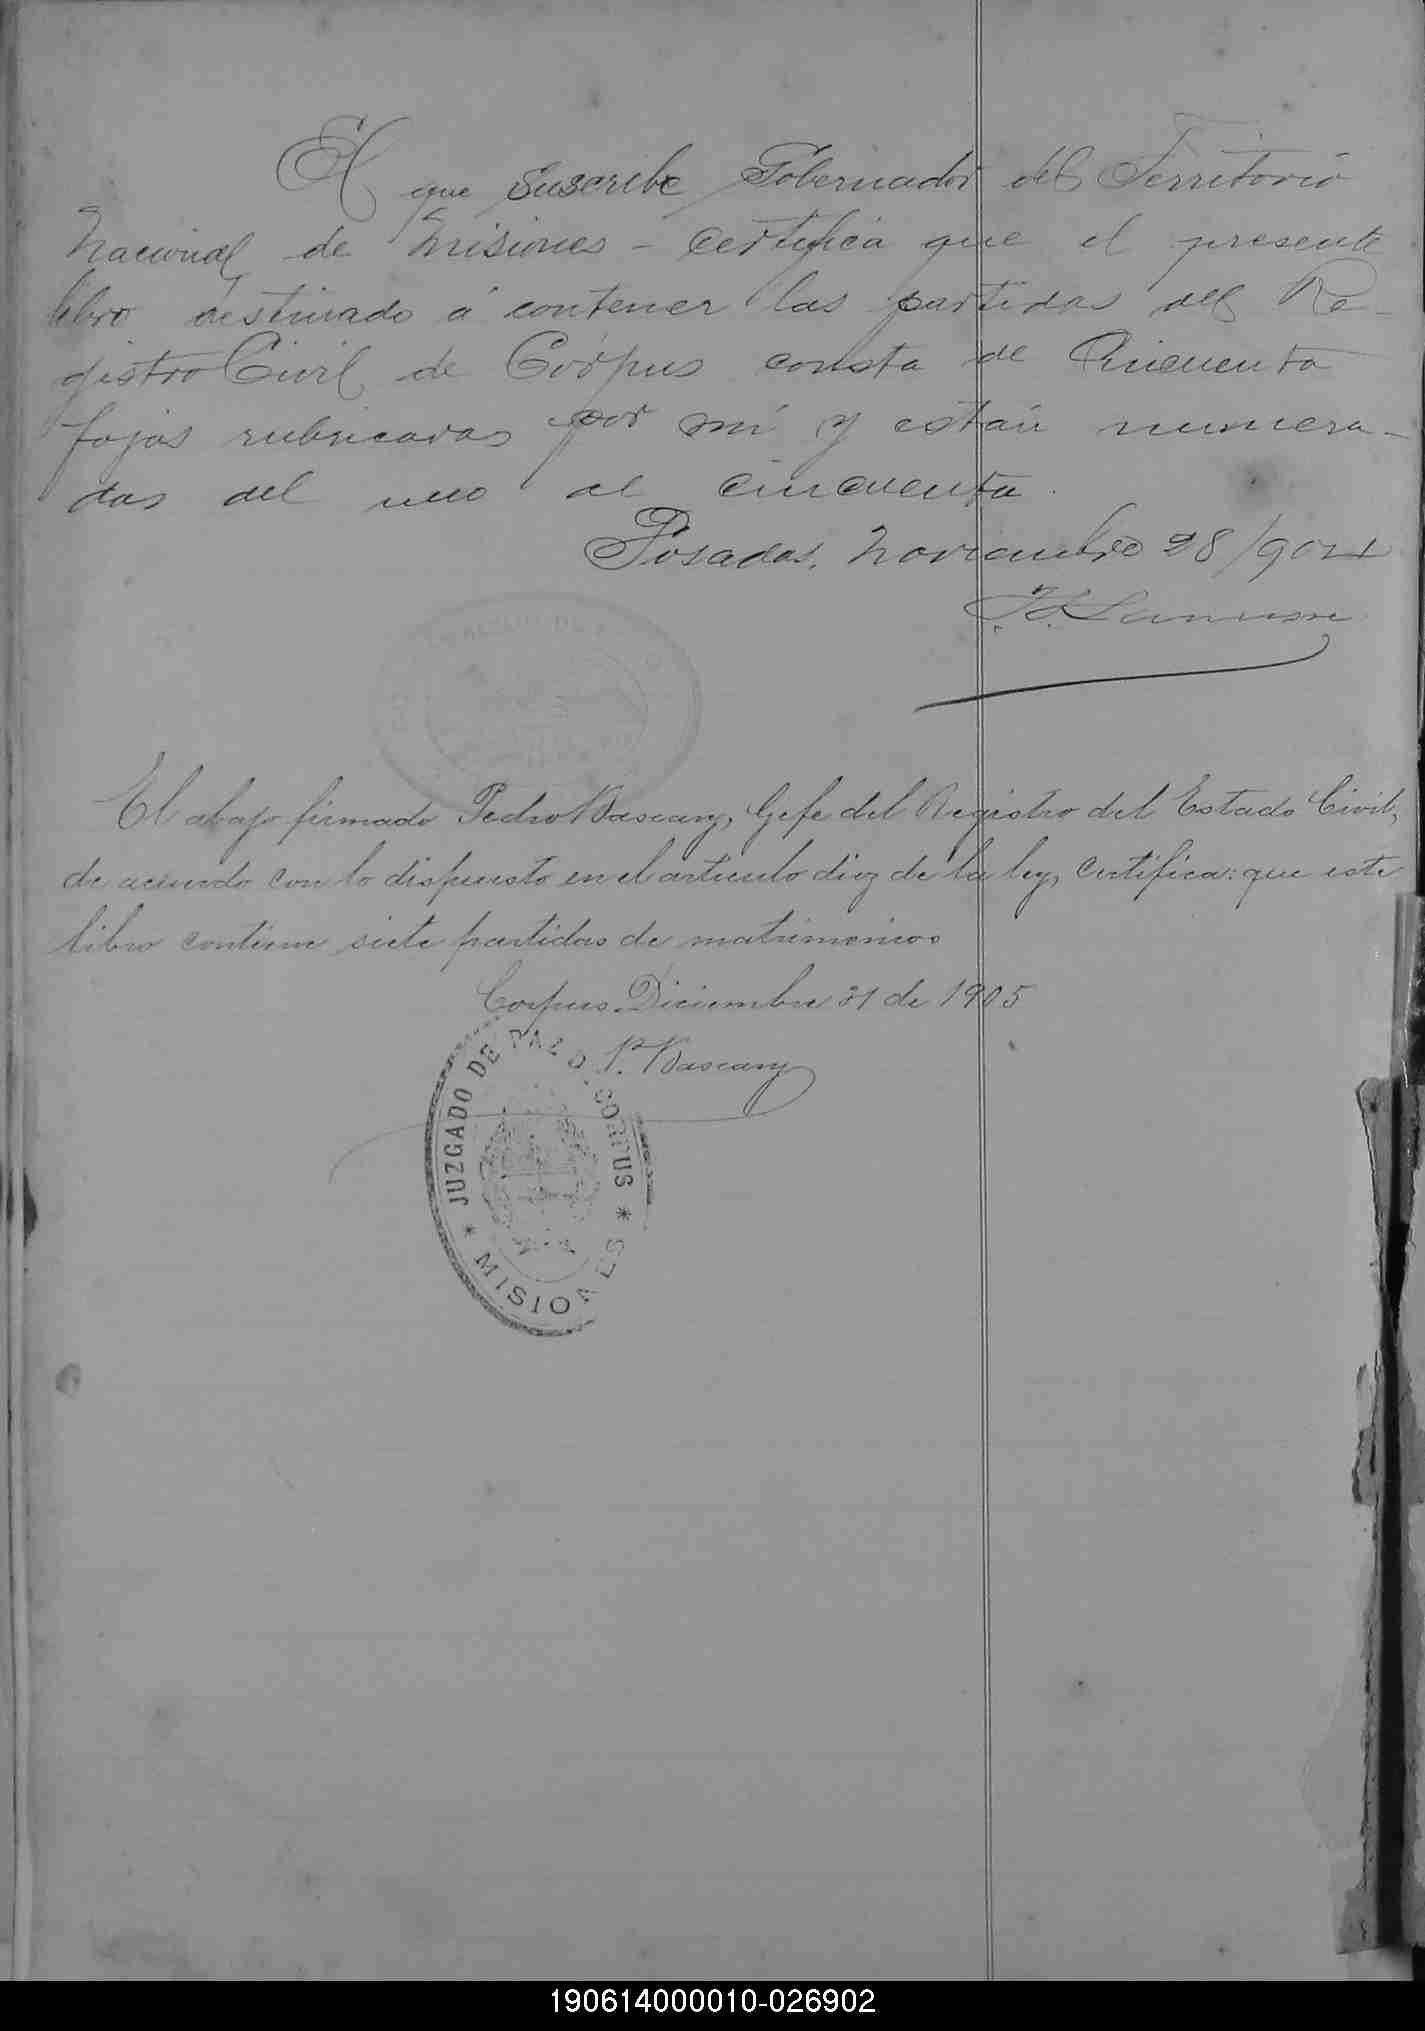 El que Suscribe Gobernador del Territorio
Nacional de Misiones - Certifica que el presente
libro destinado á contener las partidas del Re-
gistro Civil de Córpus consta de Cincuenta
fojas rubricadas por mí y están numera-
das del uno al cincuenta.
Posadas, Noviembre 28/904
J. J. Lanusse
El abajo firmado Pedro Bascary, Gefe del Registro del Estado Civil,
de acuerdo con lo dispuesto en el artículo diez de la ley, certifica: que este
libro contiene siete partidas de matrimonios
Corpus. Diciembre 31 de 1905
P. Bascary
JUZGADO DE PAZ D. CORPUS
* MISIONES *
190614000010-026902